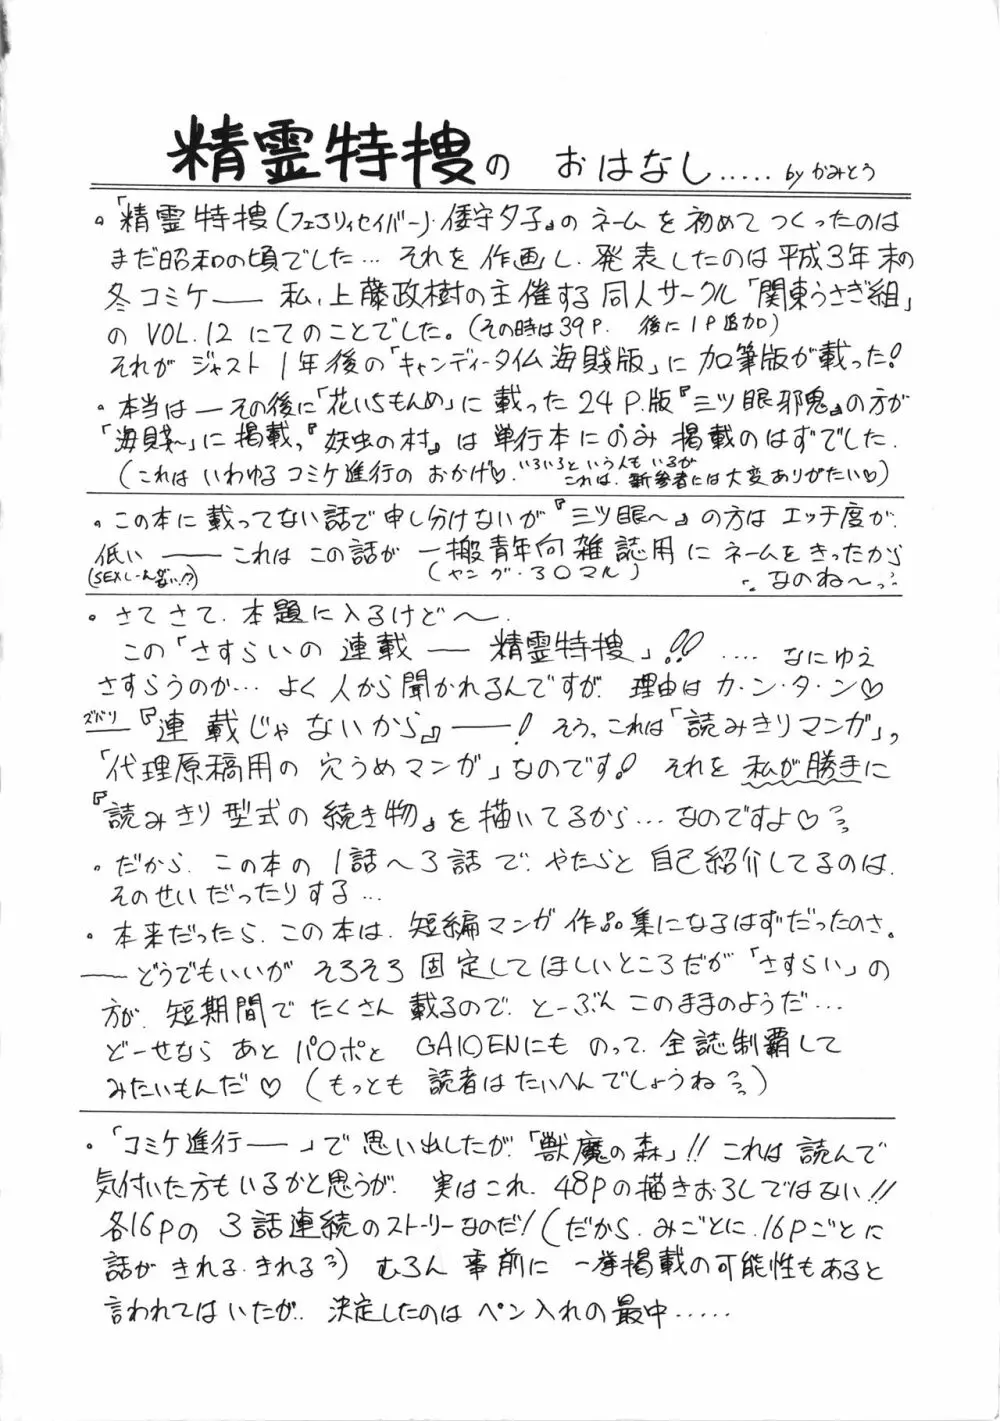 精霊特捜の おはなし..... by かみとう
・『精霊特捜(フェアリィセイバー)・倭守夕子』の ネーム を 初めて つくったのは
まだ昭和の頃でした… それを 作画し、発表したのは 平成3年 末の
冬コミケ―― 私、上藤政樹の主催する 同人サークル「関東うさぎ組」
の VOL.12 にてのことでした。(その時は39P. 後に1P追加)
それが ジャスト 1年後の「キャンディータイム海賊版」に 加筆版が載った!
・本当は ― その後に「花いちもんめ」に 載った 24P.版『三ツ眼邪鬼』の方が
「海賊〜」に 掲載、『妖虫の村』は 単行本にのみ 掲載のはずでした.
(これは いわゆる コミケ進行の おかげ♡. いろいろと いう人も いるが これは、新参者には 大変 ありがたい♡)
・この本に 載ってない話で 申し分けないが『三ツ眼〜』の方は エッチ度が、
低い ―― これは この話が 一搬青年向雑誌用に ネームをきったから
(SEXしーん無い!?) (ヤング・30マル) なのね〜っ
・さて さて、本題に 入るけど〜.
この「さすらいの 連載 ―― 精霊特捜」!! .... なにゆえ
さすらうのか… よく 人から 聞かれるんですが、理由は カ・ン・タ・ン♡
ズバリ『連載じゃないから』――! そう、これは「読みきりマンガ」、
「代理原稿用の 穴うめマンガ」なのです! それを 私が勝手に
『読みきり型式の 続き物』を 描いてるから… なのですよ♡
・だから、この本の 1話〜3話で、やたらと 自己紹介してるのは、
そのせいだったりする…
・本来だったら、この本は、短編マンガ 作品集になるはずだったのさ.
――どうでもいいが そろそろ 固定して ほしいところだが「さすらい」の
方が、短期間で たくさん 載るので、とーぶん このままのようだ…
どーせなら あと パロポと GAIDENにも のって、全誌制覇して
みたいもんだ♡ (もっとも 読者は たいへんでしょうね)
・「コミケ進行――」で 思い出したが、「獣魔の森」!! これは 読んで
気付いた方もいるかと思うが、実はこれ、48Pの描きおろしではない!!
各16Pの 3話連続のストーリーなのだ! (だから、みごとに、16Pごとに
話が きれる、きれる) むろん 事前に 一挙掲載の可能性もあると
言われてはいたが、決定したのは ペン入れの 最中.....